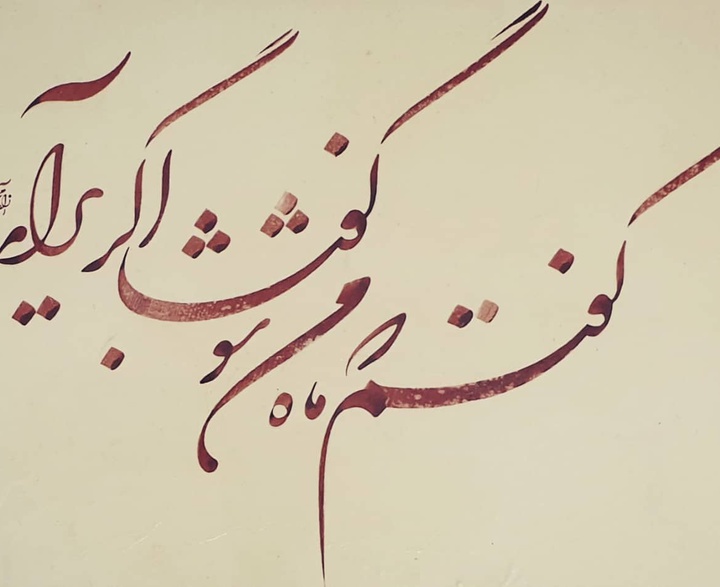 گفتم که ماه من شو گفتا اگر برآید